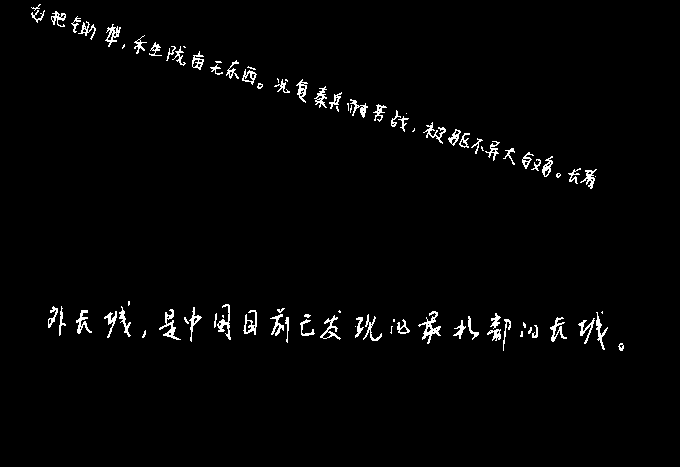 妇把锄犁，禾生陇亩无东西。况复秦兵耐苦战，被驱不异犬与鸡。长者
外长城，是中国目前已发现的最北部的长城。